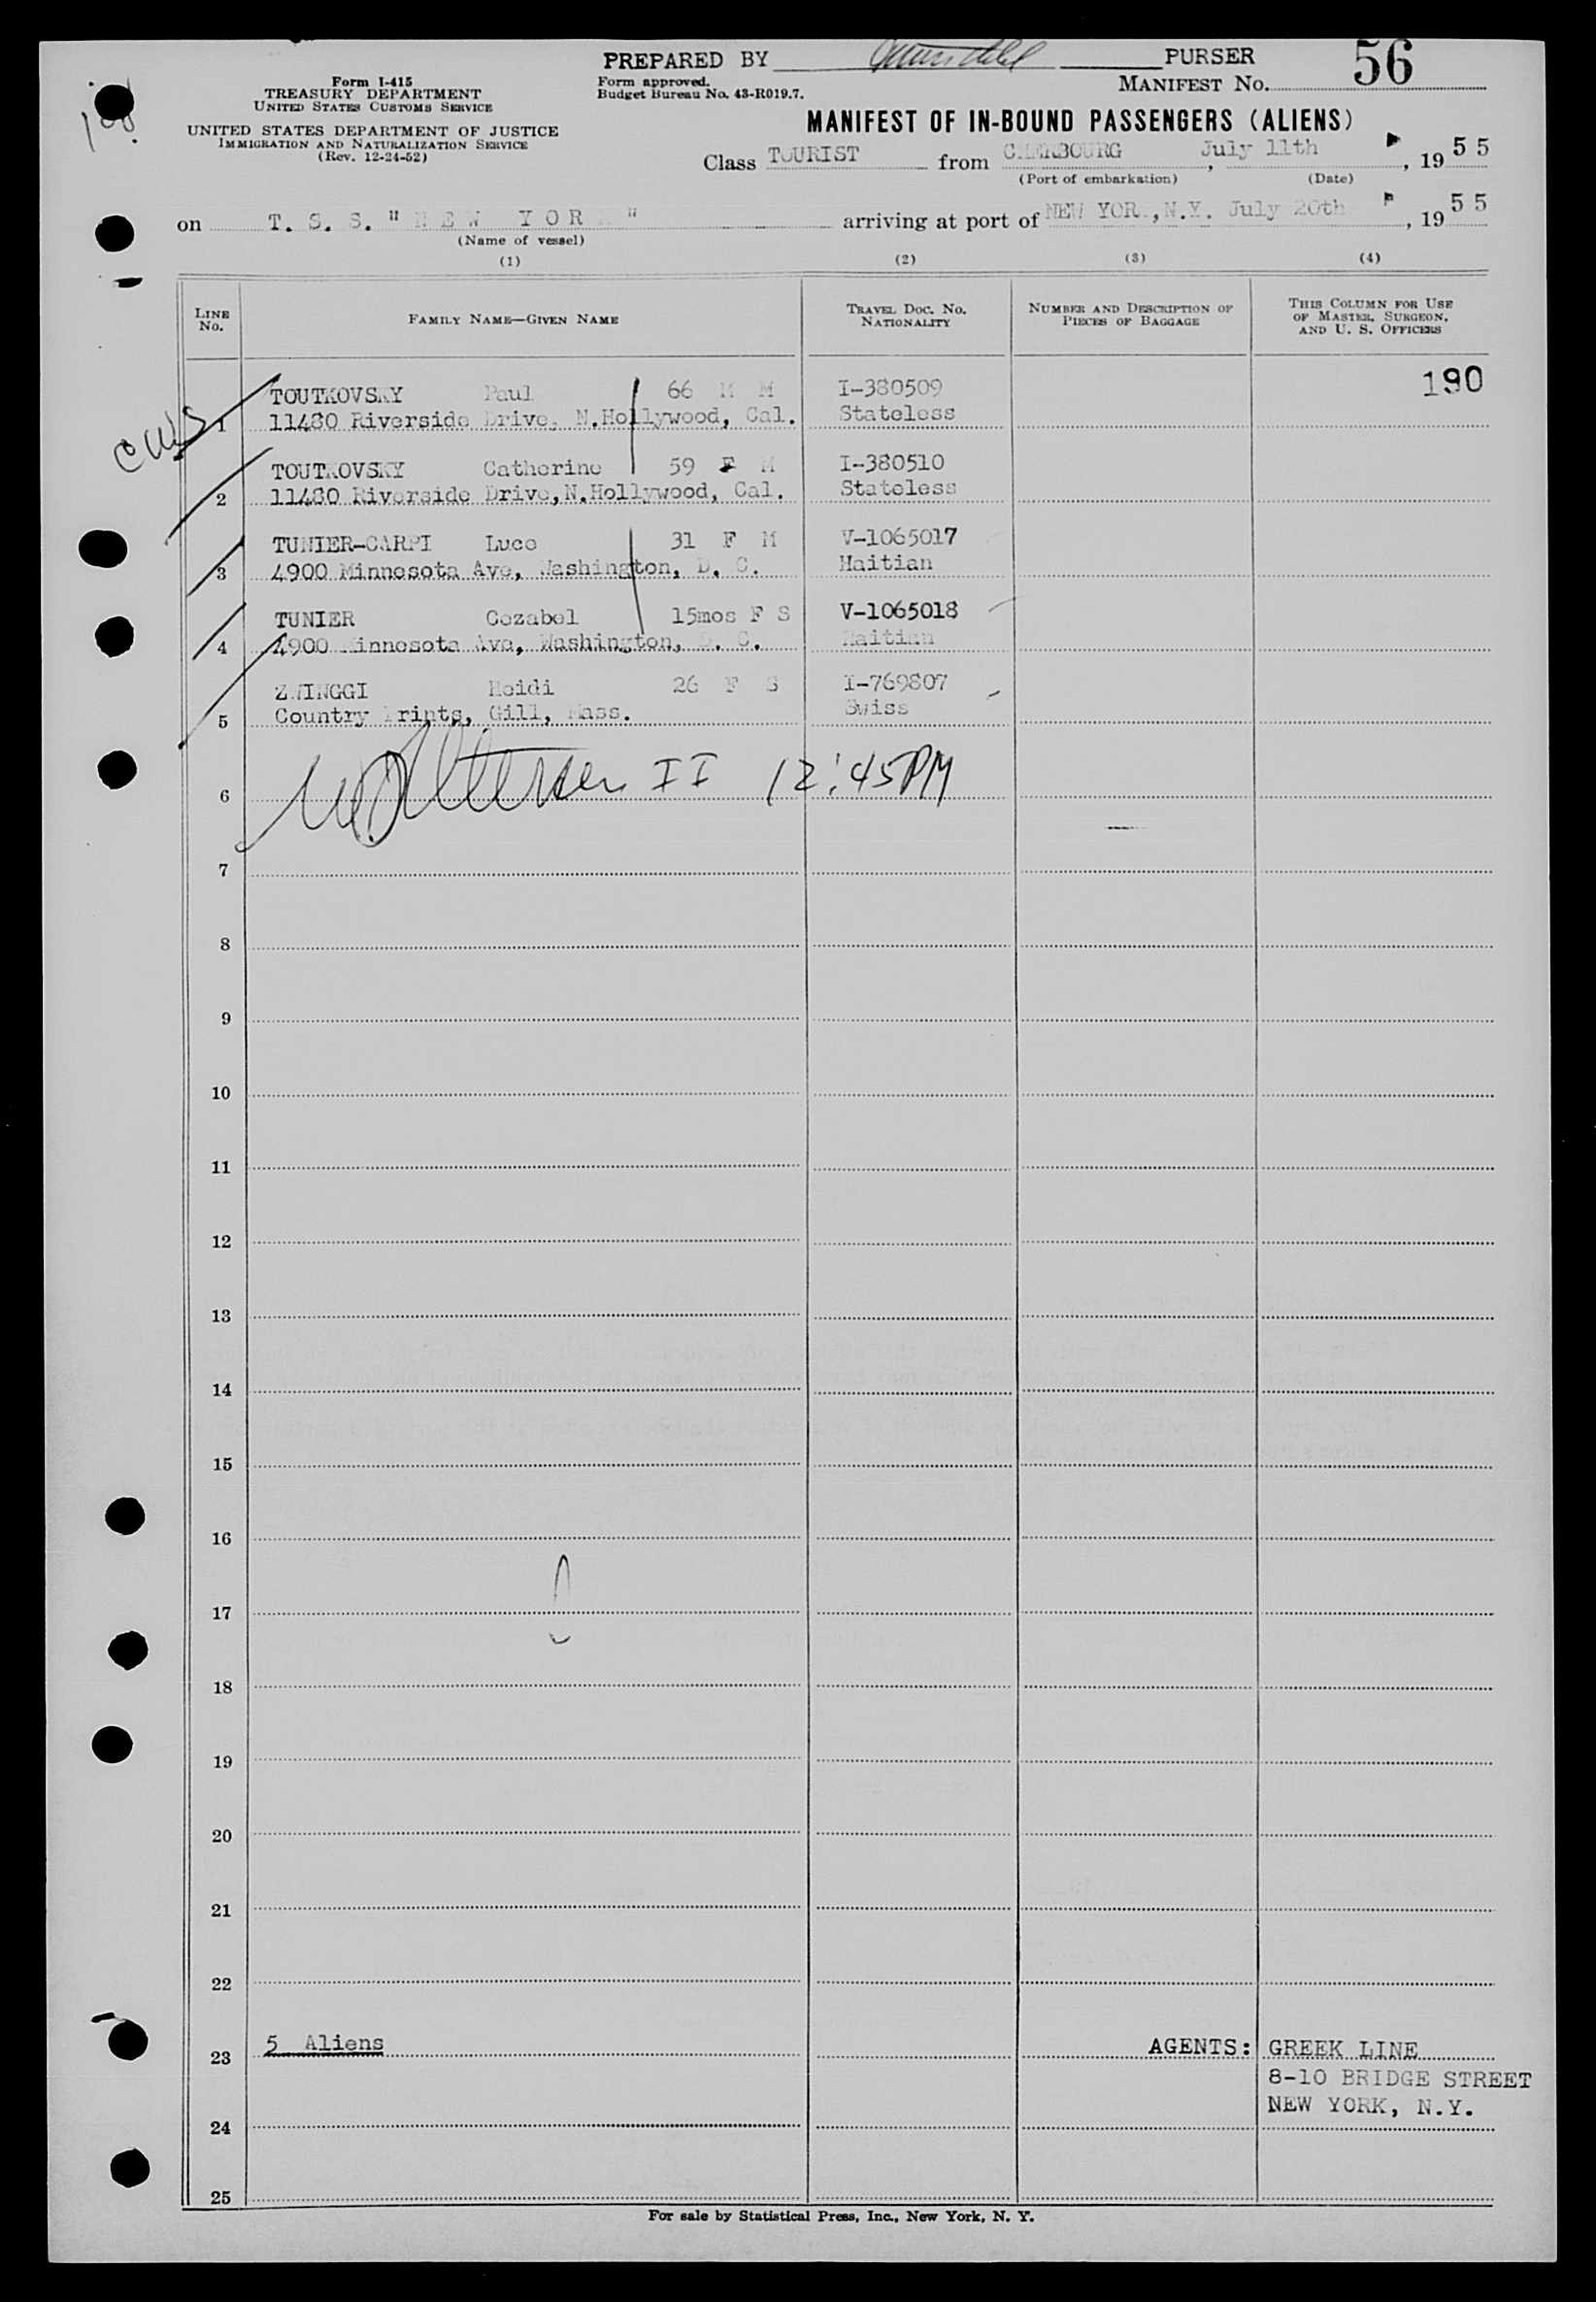 PREPARED BY PURSER 56
Form I-415
TREASURY DEPARTMENT
UNITED STATES CUSTOMS SERVICE
Form approved.
Budget Bureau No. 43-R019.7.
MANIFEST NO.
UNITED STATES DEPARTMENT OF JUSTICE
IMMIGRATION AND NATURALIZATION SERVICE
(Rev. 12-24-52)
MANIFEST OF IN-BOUND PASSENGERS (ALIENS)
Class TOURIST from CHERBOURG, July 11th, 1955
(Port of embarkation) (Date)
on T. S. S. "NEW YORK" arriving at port of NEW YORK, N.Y. July 20th, 1955
(Name of vessel)
(1) (2) (3) (4)
LINE No. FAMILY NAME—GIVEN NAME TRAVEL DOC. NO. NATIONALITY NUMBER AND DESCRIPTION OF PIECES OF BAGGAGE THIS COLUMN FOR USE OF MASTER, SURGEON, AND U. S. OFFICERS
TOUTKOVSKY Paul 66 M M I-380509 190
1 11480 Riverside Drive, N.Hollywood, Cal. Stateless
TOUTKOVSKY Catherine 59 F M I-380510
2 11480 Riverside Drive, N.Hollywood, Cal. Stateless
TUNIER-CARPI Luce 31 F M V-1065017
3 4900 Minnesota Ave, Washington, D. C. Haitian
TUNIER Cozabel 15mos F S V-1065018
4 4900 Minnesota Ave, Washington, D. C. Haitian
ZWINGGI Heidi 26 F S I-769807
5 Country Prints, Gill, Mass. Swiss
6 II 12:45PM
7
8
9
10
11
12
13
14
15
16
17
18
19
20
21
22
23 5 Aliens AGENTS: GREEK LINE
8-10 BRIDGE STREET
24 NEW YORK, N.Y.
25
For sale by Statistical Press, Inc., New York, N. Y.